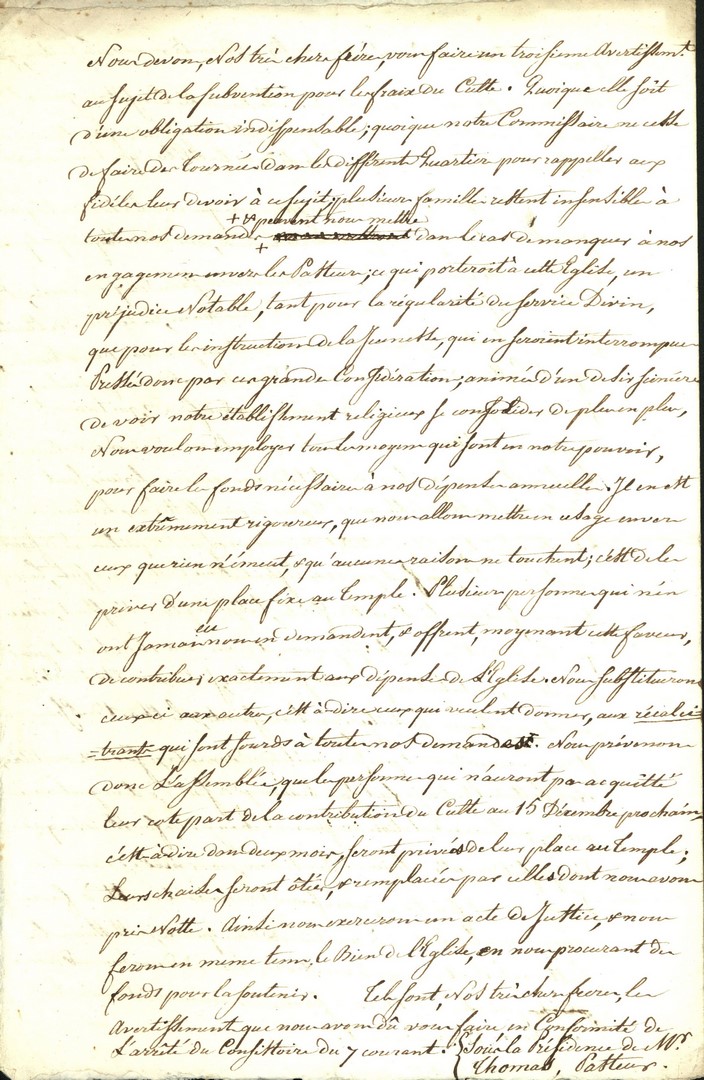 Nous devons, Nos très chers frères vous faire un troisieme Avertissemt.
au sujet de la subvention pour les fraix du Culte. Quoique elle soit
d'une obligation indispensable; quoique notre Commissaire ne cesse
de faire des Tournées dans les différents Quartiers pour rappeller aux
fidèles leurs devoirs à ce sujet; plusieurs familles restent insensibles à
+ & peuvent nous mettre
toutes nos demandes + dans le cas de manquer à nos
engagemens envers les Pasteurs; ce qui porteroit à cette Eglise, un
préjudice Notable, tant pour la régularité du Service Divin,
que pour les instructions de la Jeunesse, qui en seroient interrompues
Pressés donc par ces grandes Considérations; animés d'un desir sincère
de voir notre établissement religieux se consolider de plus en plus,
Nous voulons employer tous les moyens qui sont en notre pouvoir,
pour faire les fonds nécessaires à nos dépenses annuelles. Il en est
un extrêmement rigoureux, que nous allons mettre en usage envers
ceux que rien n'émeut, & qu'aucunes raisons ne touchent; c'est de les
priver d'une place fixe au Temple. Plusieurs personnes qui n'en
ont Jamais eu nous en demandent, & offrent, moyenant cette faveur,
de contribuer exactement aux dépenses de l'Eglise. Nous substituerons
ceux-ci aux autres, c'est à dire ceux qui veulent donner, aux récalci
=trants qui sont sourds à toutes nos demandes. Nous prévenons
donc L'assemblée, que les personnes qui n'auront pas acquitté
leur cote part de la contribution du Culte au 15 Décembre prochain,
c'est-à dire dans deux mois, seront privées de leur place au Temple;
Leurs chaises seront ôtées, & remplacées par celles dont nous avons
pris Notte. Ainsi nous exercerons un acte de Justice, & nous
ferons en meme tems, le Bien de l'Eglise, en nous procurant des
fonds pour la soutenir. Tels sont, Nos très chers freres, les
Avertissments que nous avons dû vous faire en Conformité de
L'arrêté du Consistoire du 7 courant. { Sous la Présidence de Mr.
Thomas, Pasteur.